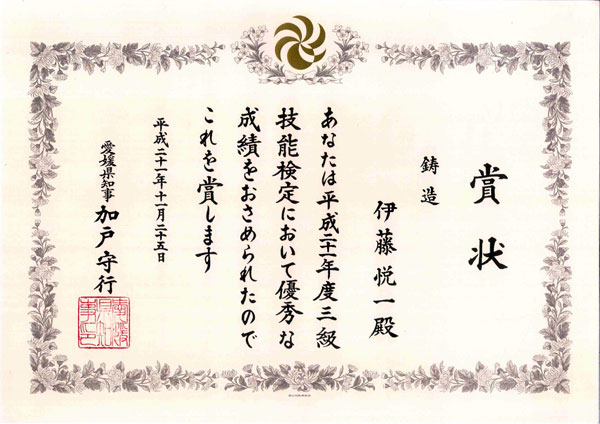 賞状
鋳造
伊藤悦一殿
あなたは平成二十一年度三級
技能検定において優秀な
成績をおさめられたので
これを賞します
平成二十一年十一月二十五日
愛媛県知事 加戸守行